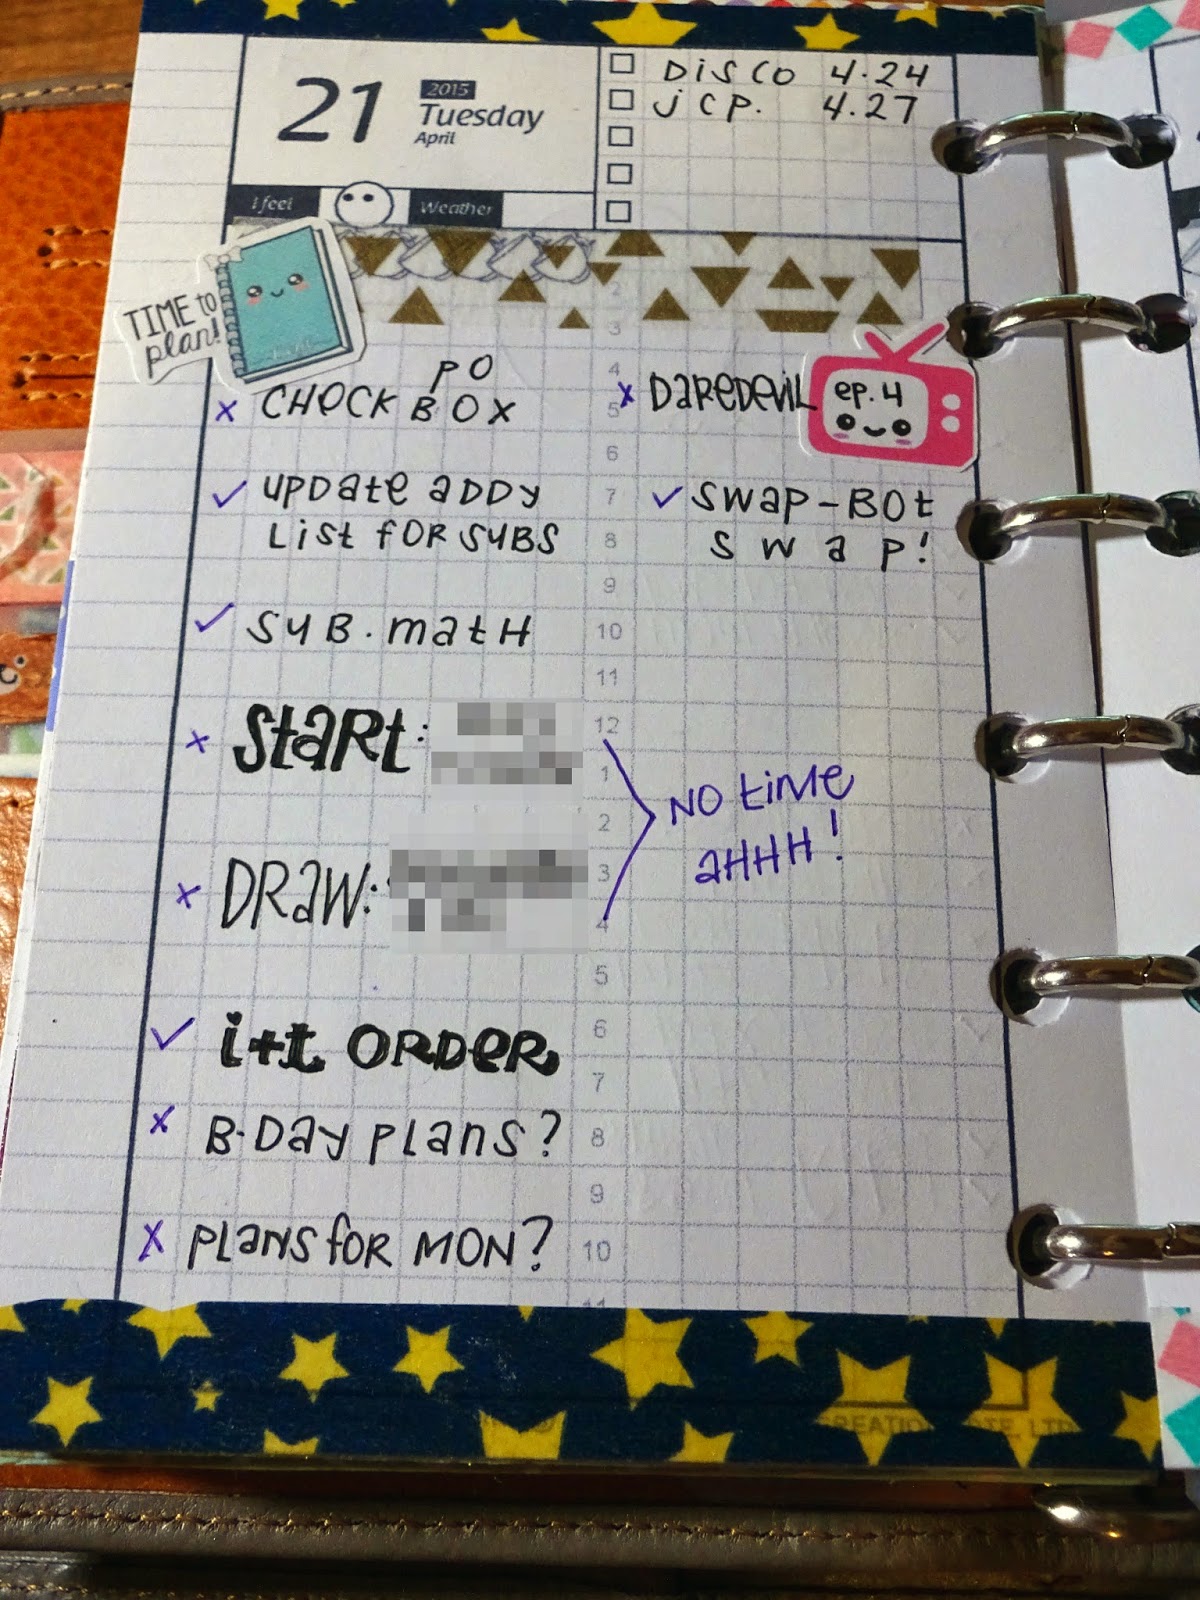 21
2015
Tuesday
April
DISCO 4.24
JCP. 4.27
I feel
Weather
TIME to
plan!
2
3
4
5
6
7
8
9
10
11
12
1
2
3
4
5
6
7
8
9
10
11
x CHECK PO BOX
✓ UPDATE ADDY
LIST FOR SUBS
✓ SUB. MATH
x START:
x DRAW:
✓ i+t ORDER
x B-DAY PLANS?
x PLANS FOR MON?
x DAREDEVIL ep. 4
✓ SWAP-BOT
SWAP!
NO TIME
AHHH!
CREATION PTE, LTD